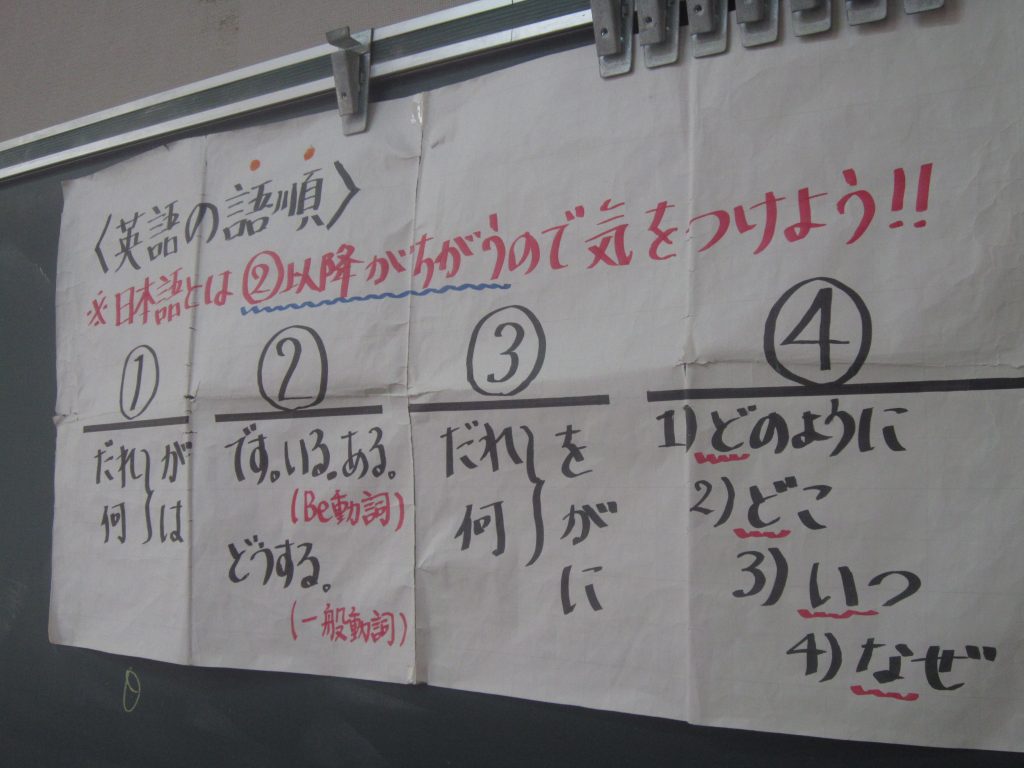 〈英語の語順〉
※日本語とは②以降がちがうので気をつけよう!!
①
だれ
何
が
は
②
です。いる。ある。
(Be動詞)
どうする。
(一般動詞)
③
だれ
何
を
が
に
④
1)どのように
2)どこ
3)いつ
4)なぜ